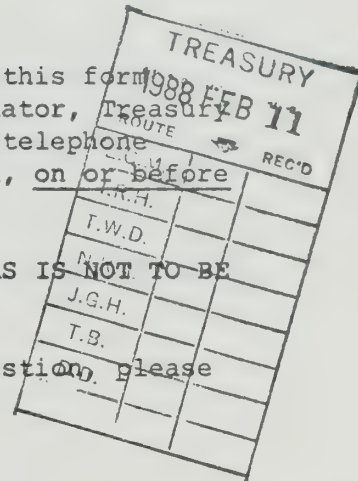 this form
ator, Treasury
telephone
, on or before
AS IS NOT TO BE
stion, please
TREASURY
1988 FEB 11
ROUTE REC'D
T.R.H.
T.W.D.
J.G.H.
T.B.
D.D.